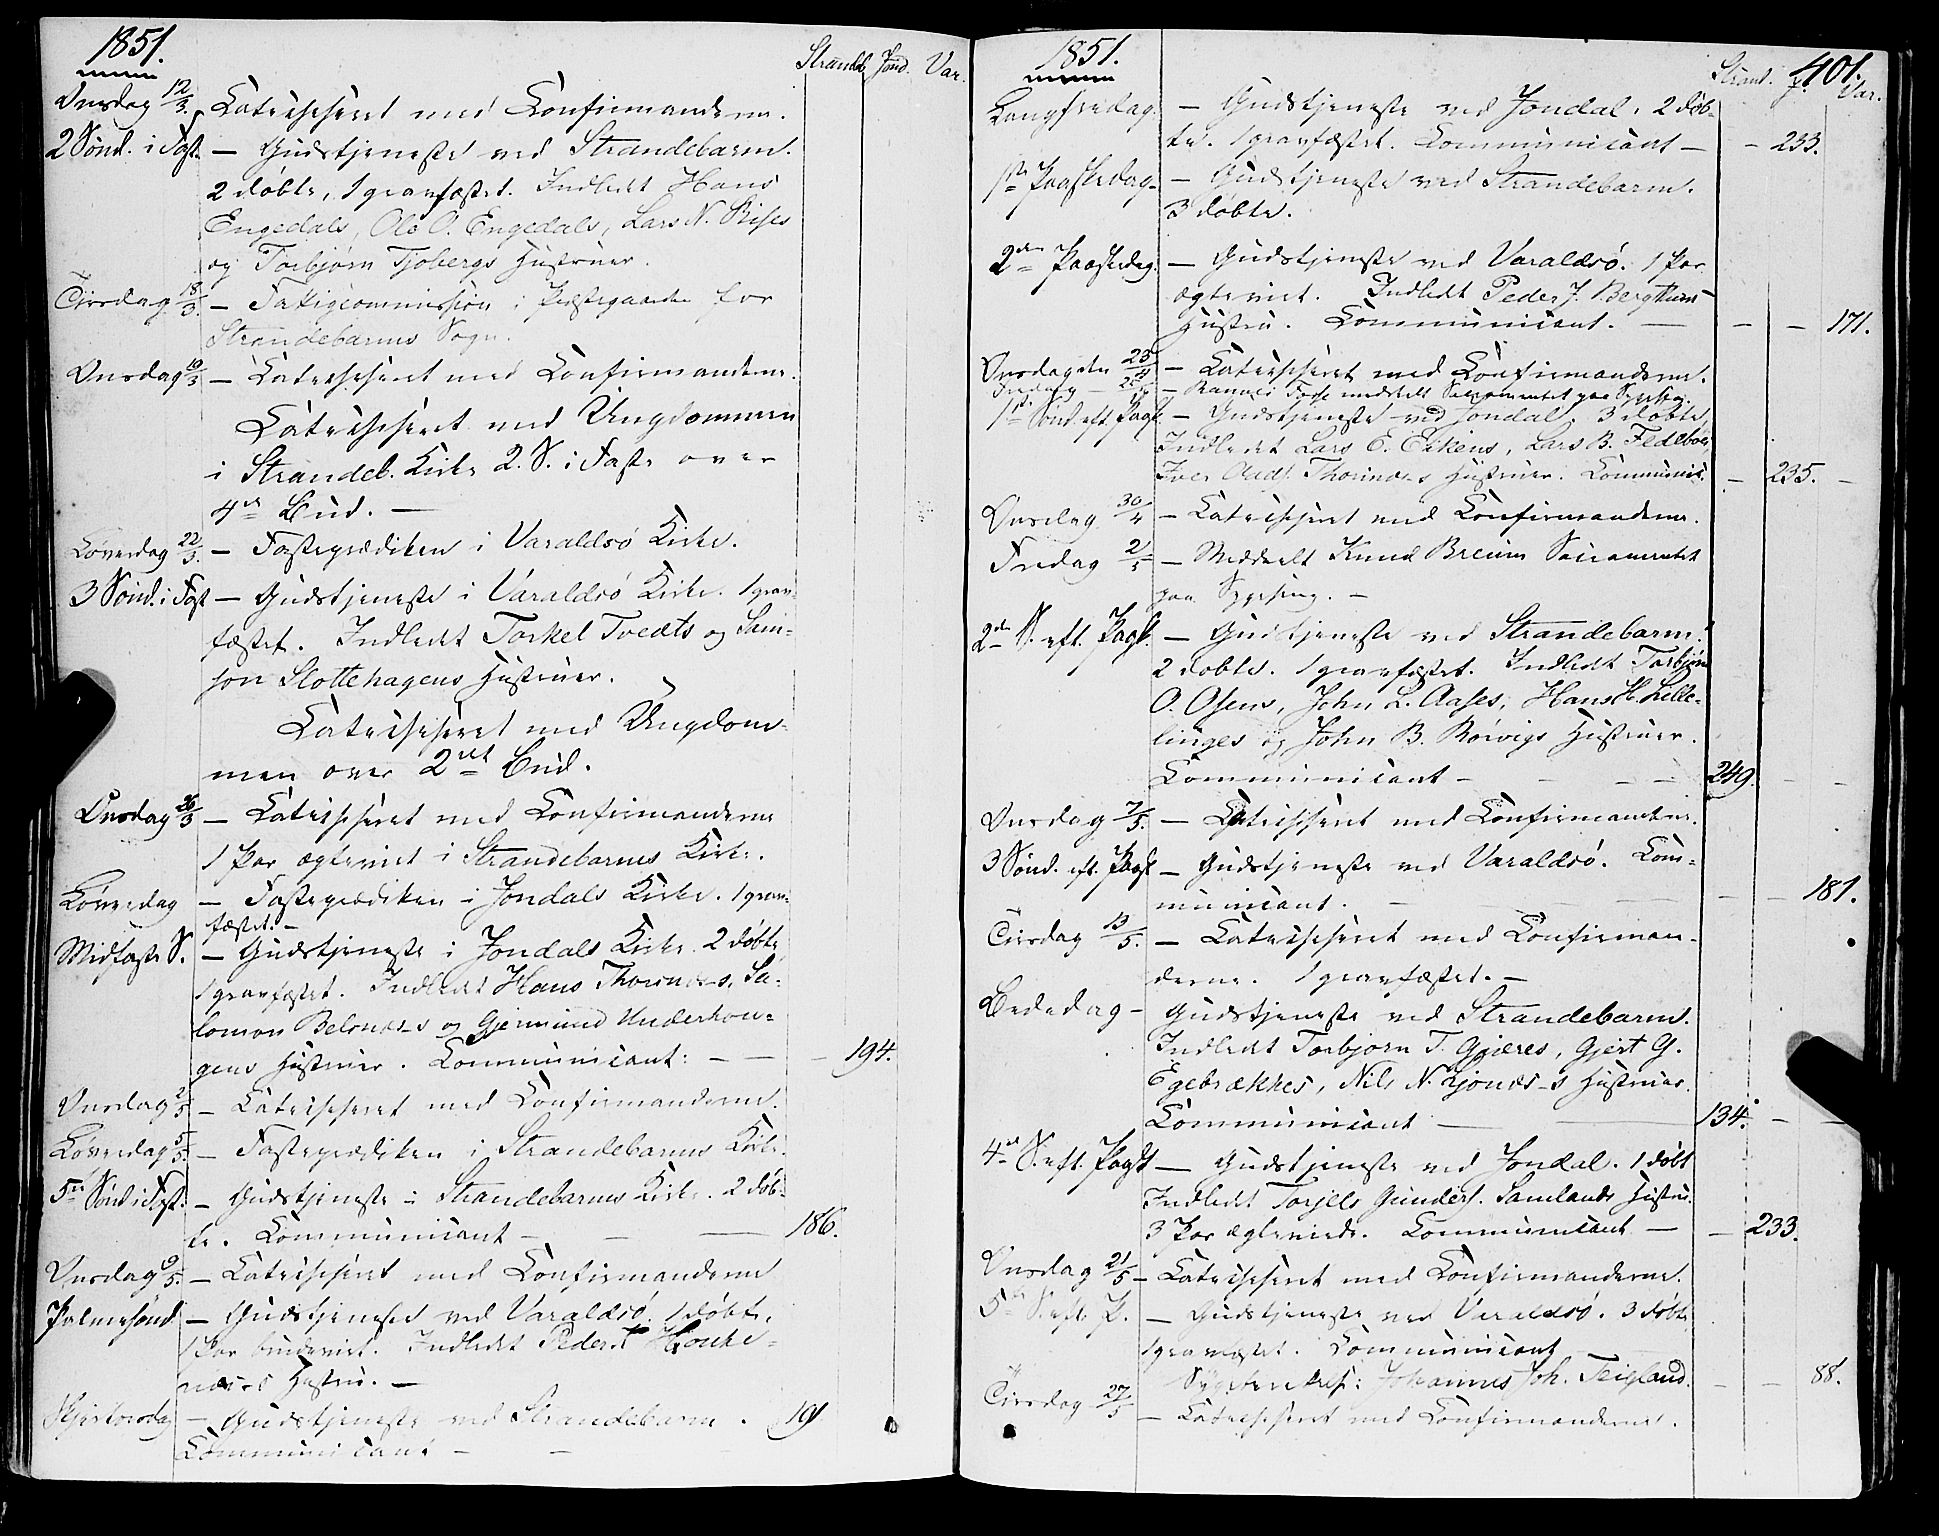 1851.
Strandeb. Jond. Var.
Onsdag 12/3. Catechiseret med Confirmanderne.
2 Sønd. i Fast. — Gudstjeneste ved Strandebarm.
2 døbte, 1 gravfæstet. Indledt Hans
Engedals, Ole O. Engedals, Lars N. Rises
og Torbjørn Tjobergs Hustruer.
Tirsdag 18/3. — Fattigcommission i Præstegaarden for
Strandebarms Sogn.
Onsdag 19/3 — Catechiseret med Confirmanderne.
Catechiseret med Ungdommen
i Strandeb. Kirke 2. S. i Faste over
4de Bud. —
Løverdag 22/3. — Fasteprædiken i Varaldsø Kirke.
3 Sønd. i Fast — Gudstjeneste i Varaldsø Kirke. 1 grav-
fæstet. Indledt Torkel Tvedts og Sam-
son Slottehagens Hustruer.
Catechiseret med Ungdom-
men over 2det Bud.
Onsdag 26/3 — Catechiseret med Confirmanderne
1 Par ægteviet i Strandebarms Kirke.
Løverdag — Fasteprædiken i Jondals Kirke. 1 grav-
fæstet. —
Midfaste S. — Gudstjeneste i Jondals Kirke. 2 døbte
1 gravfæstet. Indledt Hans Thorsnæs, Sa-
lomon Belsnæs og Gjermund Underhou-
gens Hustruer. Communicant: — — — 194.
Onsdag 2/5 — Catechiseret med Confirmanderne.
Løverdag 5/5. — Fasteprædiken i Strandebarms Kirke.
5te Sønd i Fast. — Gudstjeneste i Strandebarms Kirke. 2 døb-
te. Communicant — — — 186.
Onsdag 9/5. — Catechiseret med Confirmanderne
Palmesønd. — Gudstjeneste ved Varaldsø. 1 døbt.
1 Par brudeviet. Indledt Peder
næses Hustru. —
Skjertorsdag — Gudstjeneste ved Strandebarm. 191
Communicant — —
1851.
401.
Strand. J. Var.
Langfredag. — Gudstjeneste ved Jondal. 2 døb-
te. 1 gravfæstet. Communicant — — 233.
1ste Paaskedag. — Gudstjeneste ved Strandebarm.
3 døbte.
2den Paaskedag. — Gudstjeneste ved Varaldsø. 1 Par
ægteviet. Indledt Peder J. Bergthuns
Hustru. Communicant. — — — 171.
Onsdag den 23/4 — Catechiseret med Confirmanderne.
Fredag — 25/4 — meddelt Sacramentet paa Sygeseng.
1ste Sønd. eft. Paask. — Gudstjeneste ved Jondal. 3 døbte,
Indledet Lars E. Eikens, Lars B. Fledebøes,
Iver Aads. Thorsnæs Hustruer. Communic. — 235. —
Onsdag 30/4 — Catechiseret med Confirmanderne.
Fredag 2/5 — Meddeelt Knud Breium Sacramentet
paa Sygeseng. —
2den S. eft. Paask. — Gudstjeneste ved Strandebarm.
2 døbte. 1 gravfæstet. Indledt Torbjørn
O. Osens, John L. Aases, Hans H. Lille-
linges og John B. Rørvigs Hustruer.
Communicant — — — 249. — —
Onsdag 7/5. — Catechiseret med Confirmanterne.
3 Sønd. eft. Paask — Gudstjeneste ved Varaldsø. Com-
municant. — — — 181.
Tirsdag 13/5. — Catechiseret med Confirman-
derne. 1 gravfæstet. —
Bededag — Gudstjeneste ved Strandebarm.
Indledt Torbjørn T. Gjæres, Gjert G.
Egebrækkes, Nils N. Kjønæs-s Hustruer.
Communicant — — 134. — —
4de S. eft. Paask — Gudstjeneste ved Jondal. 1 døbt
Indledt Torjels Gunders. Samlands Hustru.
3 Par ægteviede. Communicant — — 233.
Onsdag 21/5 — Catechiseret med Confirmanderne.
5te S. eft. P. — Gudstjeneste ved Varaldsø. 3 døbte
1 gravfæstet. Communicant
Johannes Joh. Teigland. — — 88.
Tirsdag 27/5 — Catechiseret med Confirmanderne.